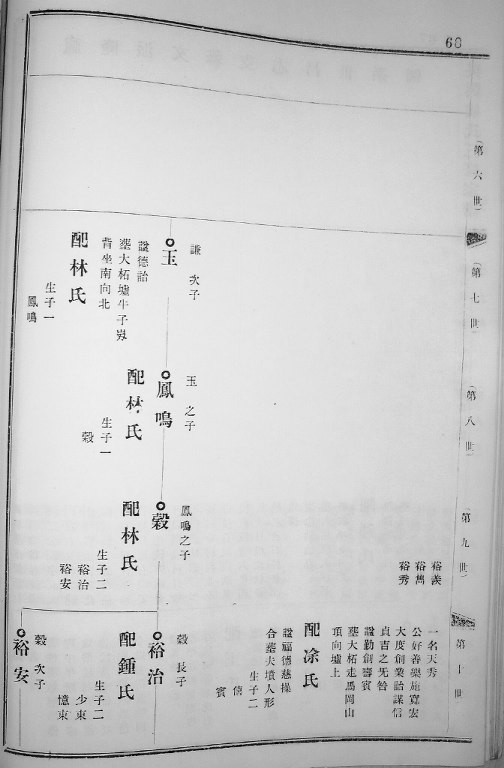 60
(第六世)
(第七世)
(第八世)
(第九世)
第十世
裕羨
裕雋
裕秀
一名天秀
公好善樂施寬宏
大度創業詒謀信
貞吉之旡咎
諡勤創譜賓
塟大柘走馬岡山
項向墟上
配凃氏
諡福德慈操
合塟夫墳人形
生子二
儐
賓
謙次子
玉
諡德詒
塟大柘墟牛子岃
背坐南向北
配林氏
生子一
鳳鳴
玉之子
鳳鳴
配林氏
生子一
穀
鳳鳴之子
穀
配林氏
生子二
裕治
裕安
穀長子
裕治
配鍾氏
生子二
少東
憶東
穀次子
裕安